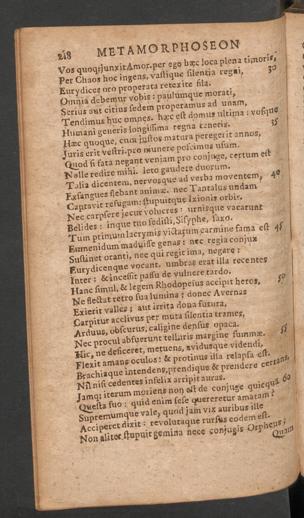 218 METAMORPHOSEON
Vos quoq; junxit Amor. per ego hæc loca plena timoris,
Per Chaos hoc ingens, vastique silentia regni, 30
Eurydices oro properata retexite fila.
Omnia debemur vobis: paulumque morati,
Serius aut citius sedem properamus ad unam,
Tendimus huc omnes. hæc est domus ultima: vosque
Humani generis longissima regna tenetis. 35
Hæc quoque, cum justos matura peregerit annos,
Juris erit vestri. pro munere poscimus usum.
Quod si fata negant veniam pro conjuge, certum est
Nolle redire mihi. leto gaudete duorum.
Talia dicentem, nervosque ad verba moventem, 40
Exsangues flebant animæ. nec Tantalus undam
Captavit refugam: stupuitque Ixionis orbis.
Nec carpsere jecur volucres: urnisque vacarunt
Belides: inque tuo sedisti, Sisyphe, saxo.
Tum primum lacrymis victarum carmine fama est 45
Eumenidum maduisse genas: nec regia conjux
Sustinet oranti, nec qui regit ima, negare:
Eurydicenque vocant. umbras erat illa recentes
Inter: & incessit passu de vulnere tardo.
Hanc simul, & legem Rhodopeius accipit heros, 50
Ne flectat retro sua lumina; donec Avernas
Exierit valles: aut irrita dona futura.
Carpitur acclivus per muta silentia trames,
Arduus, obscurus, caligine densus opaca.
Nec procul abfuerunt telluris margine summæ. 55
Hic, ne deficeret, metuens, avidusque videndi,
Flexit amans oculos: & protinus illa relapsa est.
Brachiaque intendens, prendique & prendere certans,
Nil nisi cedentes infelix arripit auras.
Jamq; iterum moriens non est de conjuge quicquā 60
Questa suo: quid enim sese quereretur amatam?
Supremumque vale, quod jam vix auribus ille
Acciperet dixit: revolutaque rursus eodem est.
Non aliter stupuit gemina nece conjugis Orpheus;
Quam